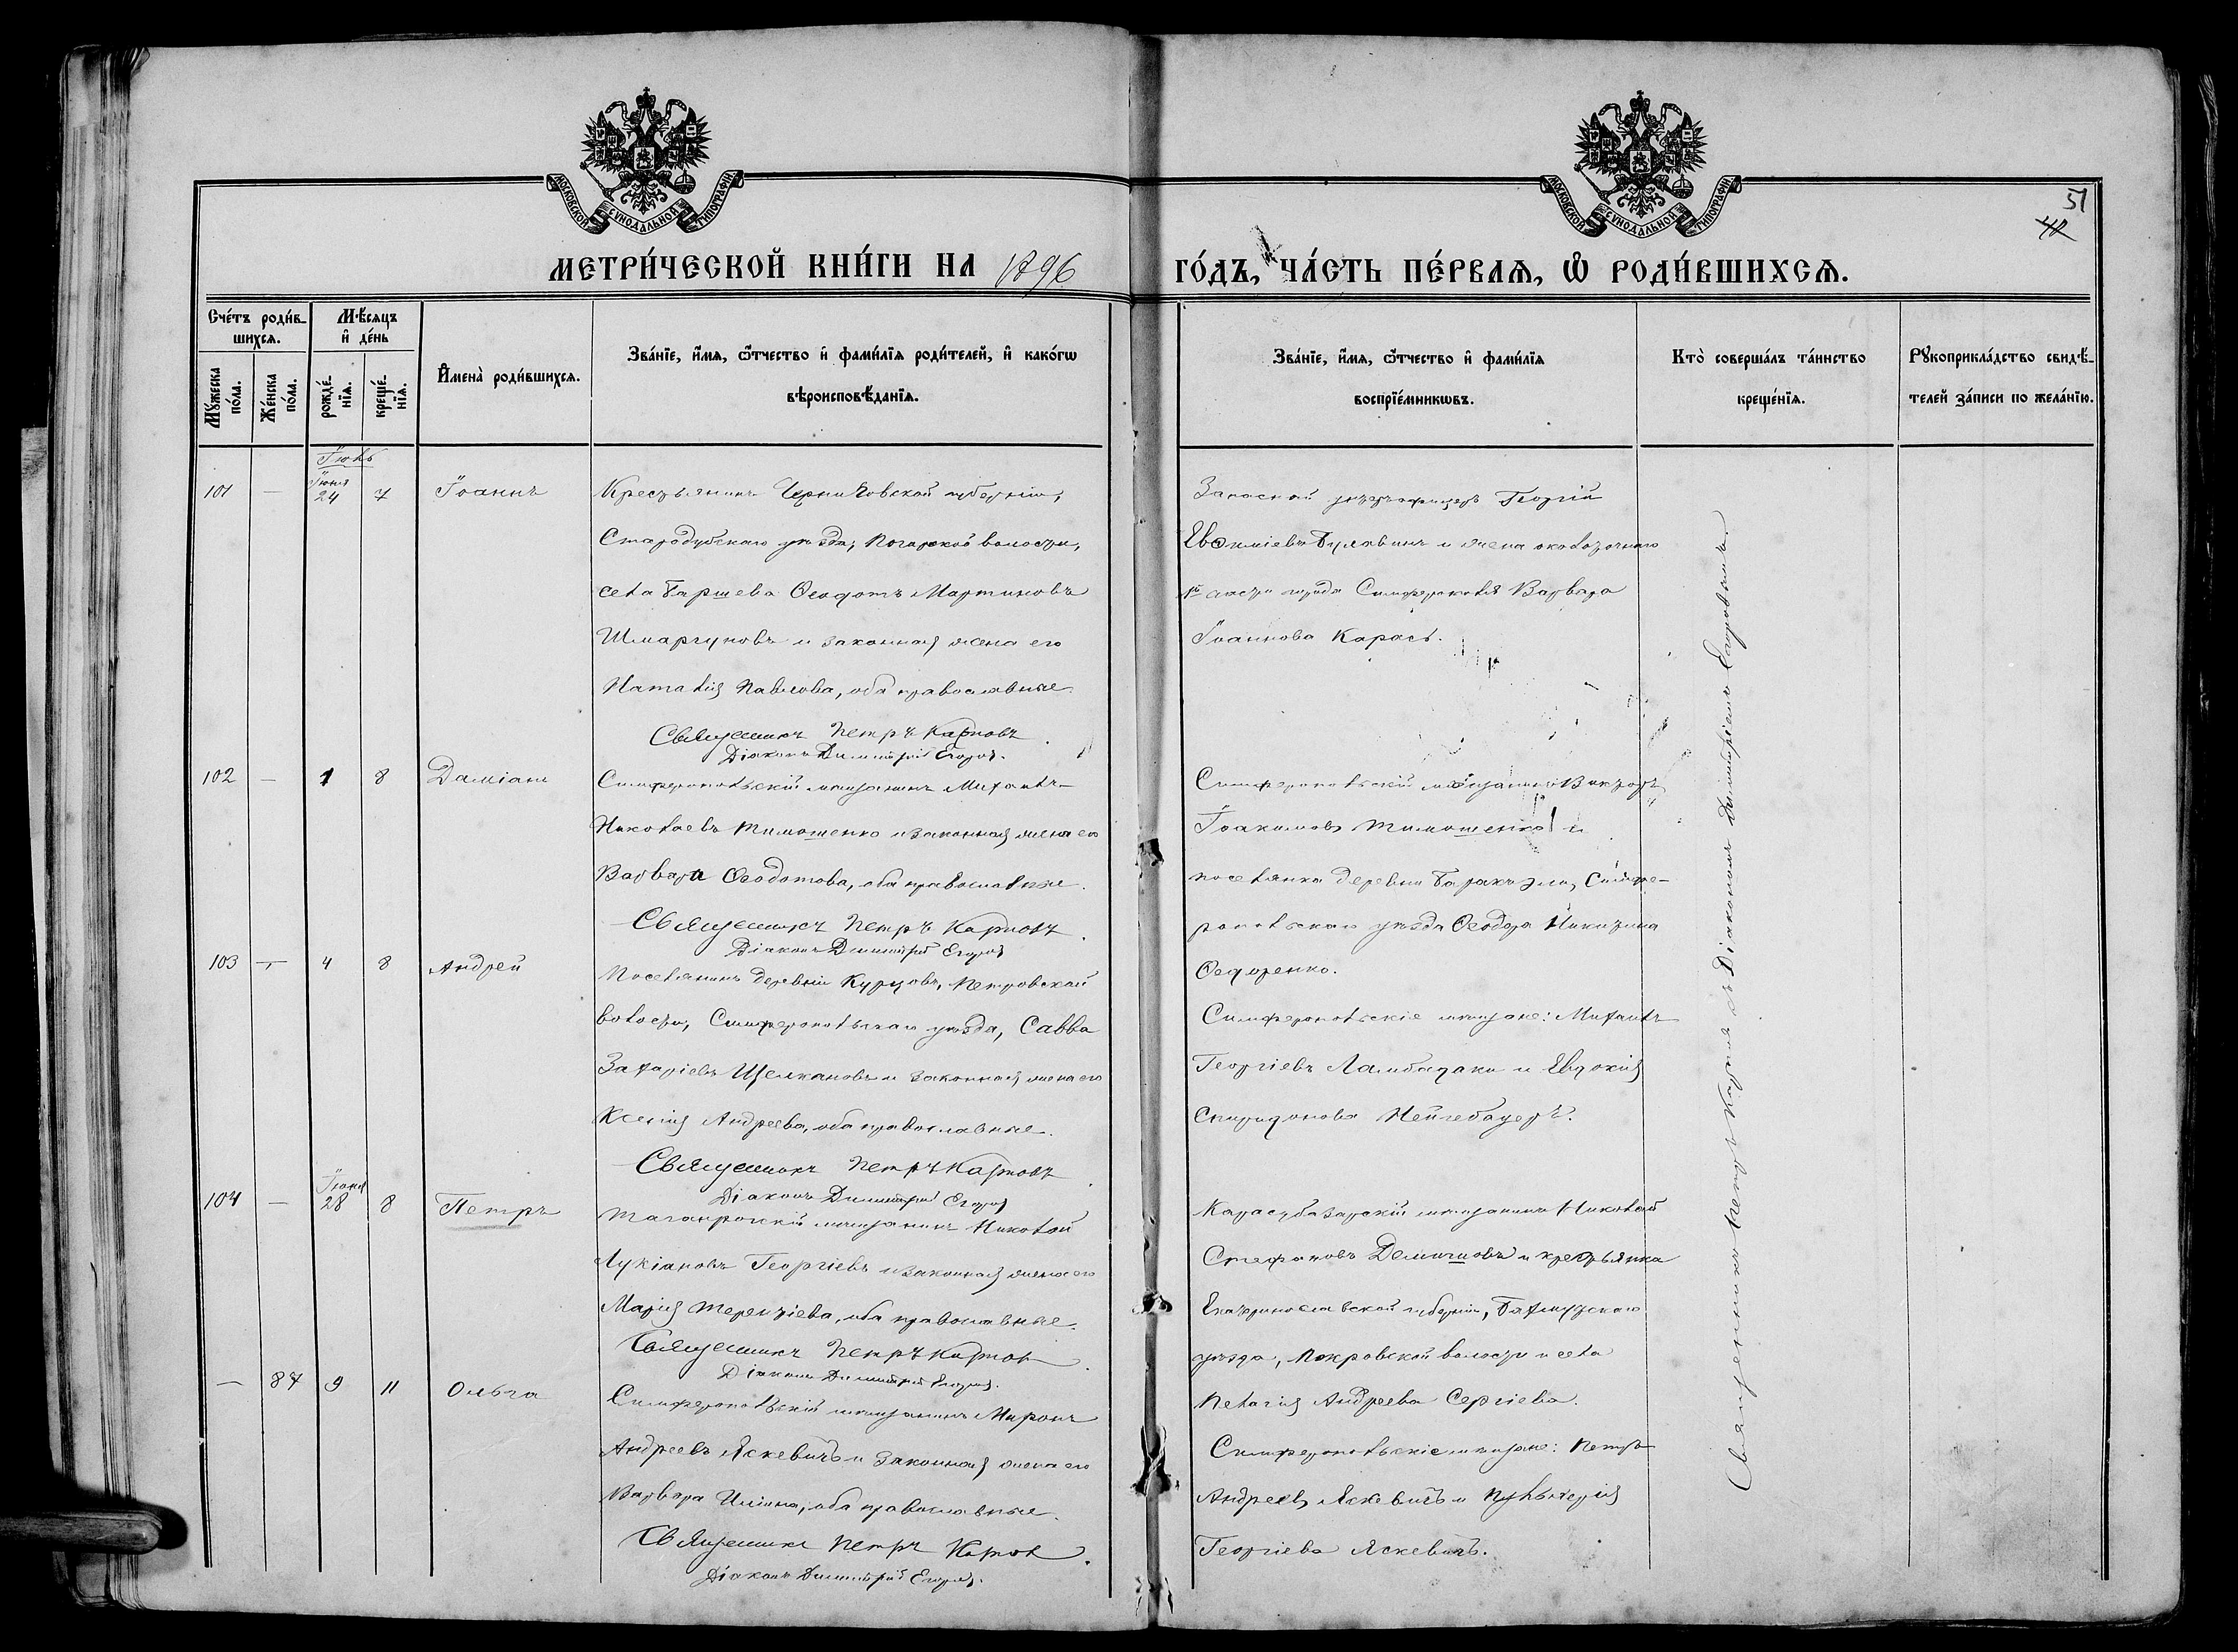 МОСКОВСКОЙ СѴНОДАЛЬНОЙ ТИПОГРАФІИ
МОСКОВСКОЙ СѴНОДАЛЬНОЙ ТИПОГРАФІИ
51
МЕТРИ́ЧЕСКОЙ КНИ́ГИ НА 1896 ГО́ДЪ, ЧА́СТЬ ПЕ́РВАѦ, Ѡ РОДИ́ВШИХСѦ.
Сче́тъ роди́в-
шихсѧ.
Мꙋ́жеска по́ла.
Же́нска по́ла.
Мѣ́сѧцъ
и де́нь
рожде́-
нїѧ.
креще́-
нїѧ.
Имена̀ роди́вшихсѧ.
Зва́нїе, и́мѧ, ѻ́тчество и фами́лїѧ роди́телей, и како́гѡ
вѣроисповѣ́данїѧ.
Зва́нїе, и́мѧ, ѻ́тчество и фами́лїѧ
воспрїе́мникѡвъ.
Кто̀ соверша́лъ та́инство
креще́нїѧ.
Рꙋкоприкла́дство свидѣ́-
телей за́писи по жела́нїю.
Іюль
101 — Іюня 24 7 Іоаннъ
Крестьянинъ Черниговской губерніи,
Стародубскаго уѣзда, Погарской волости,
села Баршева Ѳеодотъ Мартиновъ
Шмаргуновъ и законная жена его
Наталія Павлова, оба православные.
Священникъ Петръ Карповъ.
Діаконъ Димитрій Егоровъ.
Запасной унтерофицеръ Георгій
Евѳиміевъ Булавинъ и жена околоточнаго
1й части города Симферополя Варвара
Іоаннова Карась.
102 — 1 8 Даміанъ
Симферопольскій мѣщанинъ Михаилъ
Николаевъ Тимошенко и законная жена его
Варвара Ѳеодотова, оба православные.
Священникъ Петръ Карповъ.
Діаконъ Димитрій Егоровъ
Симферопольскій мѣщанинъ Викторъ
Іоакимовъ Тимошенко и
поселянка деревни Симфе-
ропольскаго уѣзда Ѳеодора Никитина
Ѳедоренко.
103 — 4 8 Андрей
Поселянинъ деревни Курцовъ, Петровской
волости, Симферопольскаго уѣзда, Савва
Захаріевъ Щелкановъ и законная жена его
Ксенія Андреева, оба православные.
Священникъ Петръ Карповъ.
Діаконъ Димитрій Егоровъ
Симферопольскіе мѣщане: Михаилъ
Георгіевъ Ламбадаки и Евдокія
Спиридонова Нейгебауеръ.
104 — Іюня 28 8 Петръ
Таганрогскій мѣщанинъ Николай
Лукіановъ Георгіевъ и законная жена его
Марія Терентіева, оба православные.
Священникъ Петръ Карповъ.
Діаконъ Димитрій Егоровъ.
Карасубазарскій мѣщанинъ Николай
Стефановъ и крестьянка
Екатеринославской губерніи, Бахмутскаго
уѣзда, Покровской волости и села
Пелагія Андреева Сергіева.
— 87 9 11 Ольга
Симферопольскій мѣщанинъ Миронъ
Андреевъ Яскевичъ и законная жена его
Варвара Ильина, оба православные.
Священникъ Петръ Карповъ.
Діаконъ Димитрій Егоровъ.
Симферопольскіе мѣщане: Петръ
Андреевъ Яскевичъ и Пульхерія
Георгіева Яскевичъ.
Священникъ Петръ Карповъ съ Діакономъ Димитріемъ Егоровымъ.